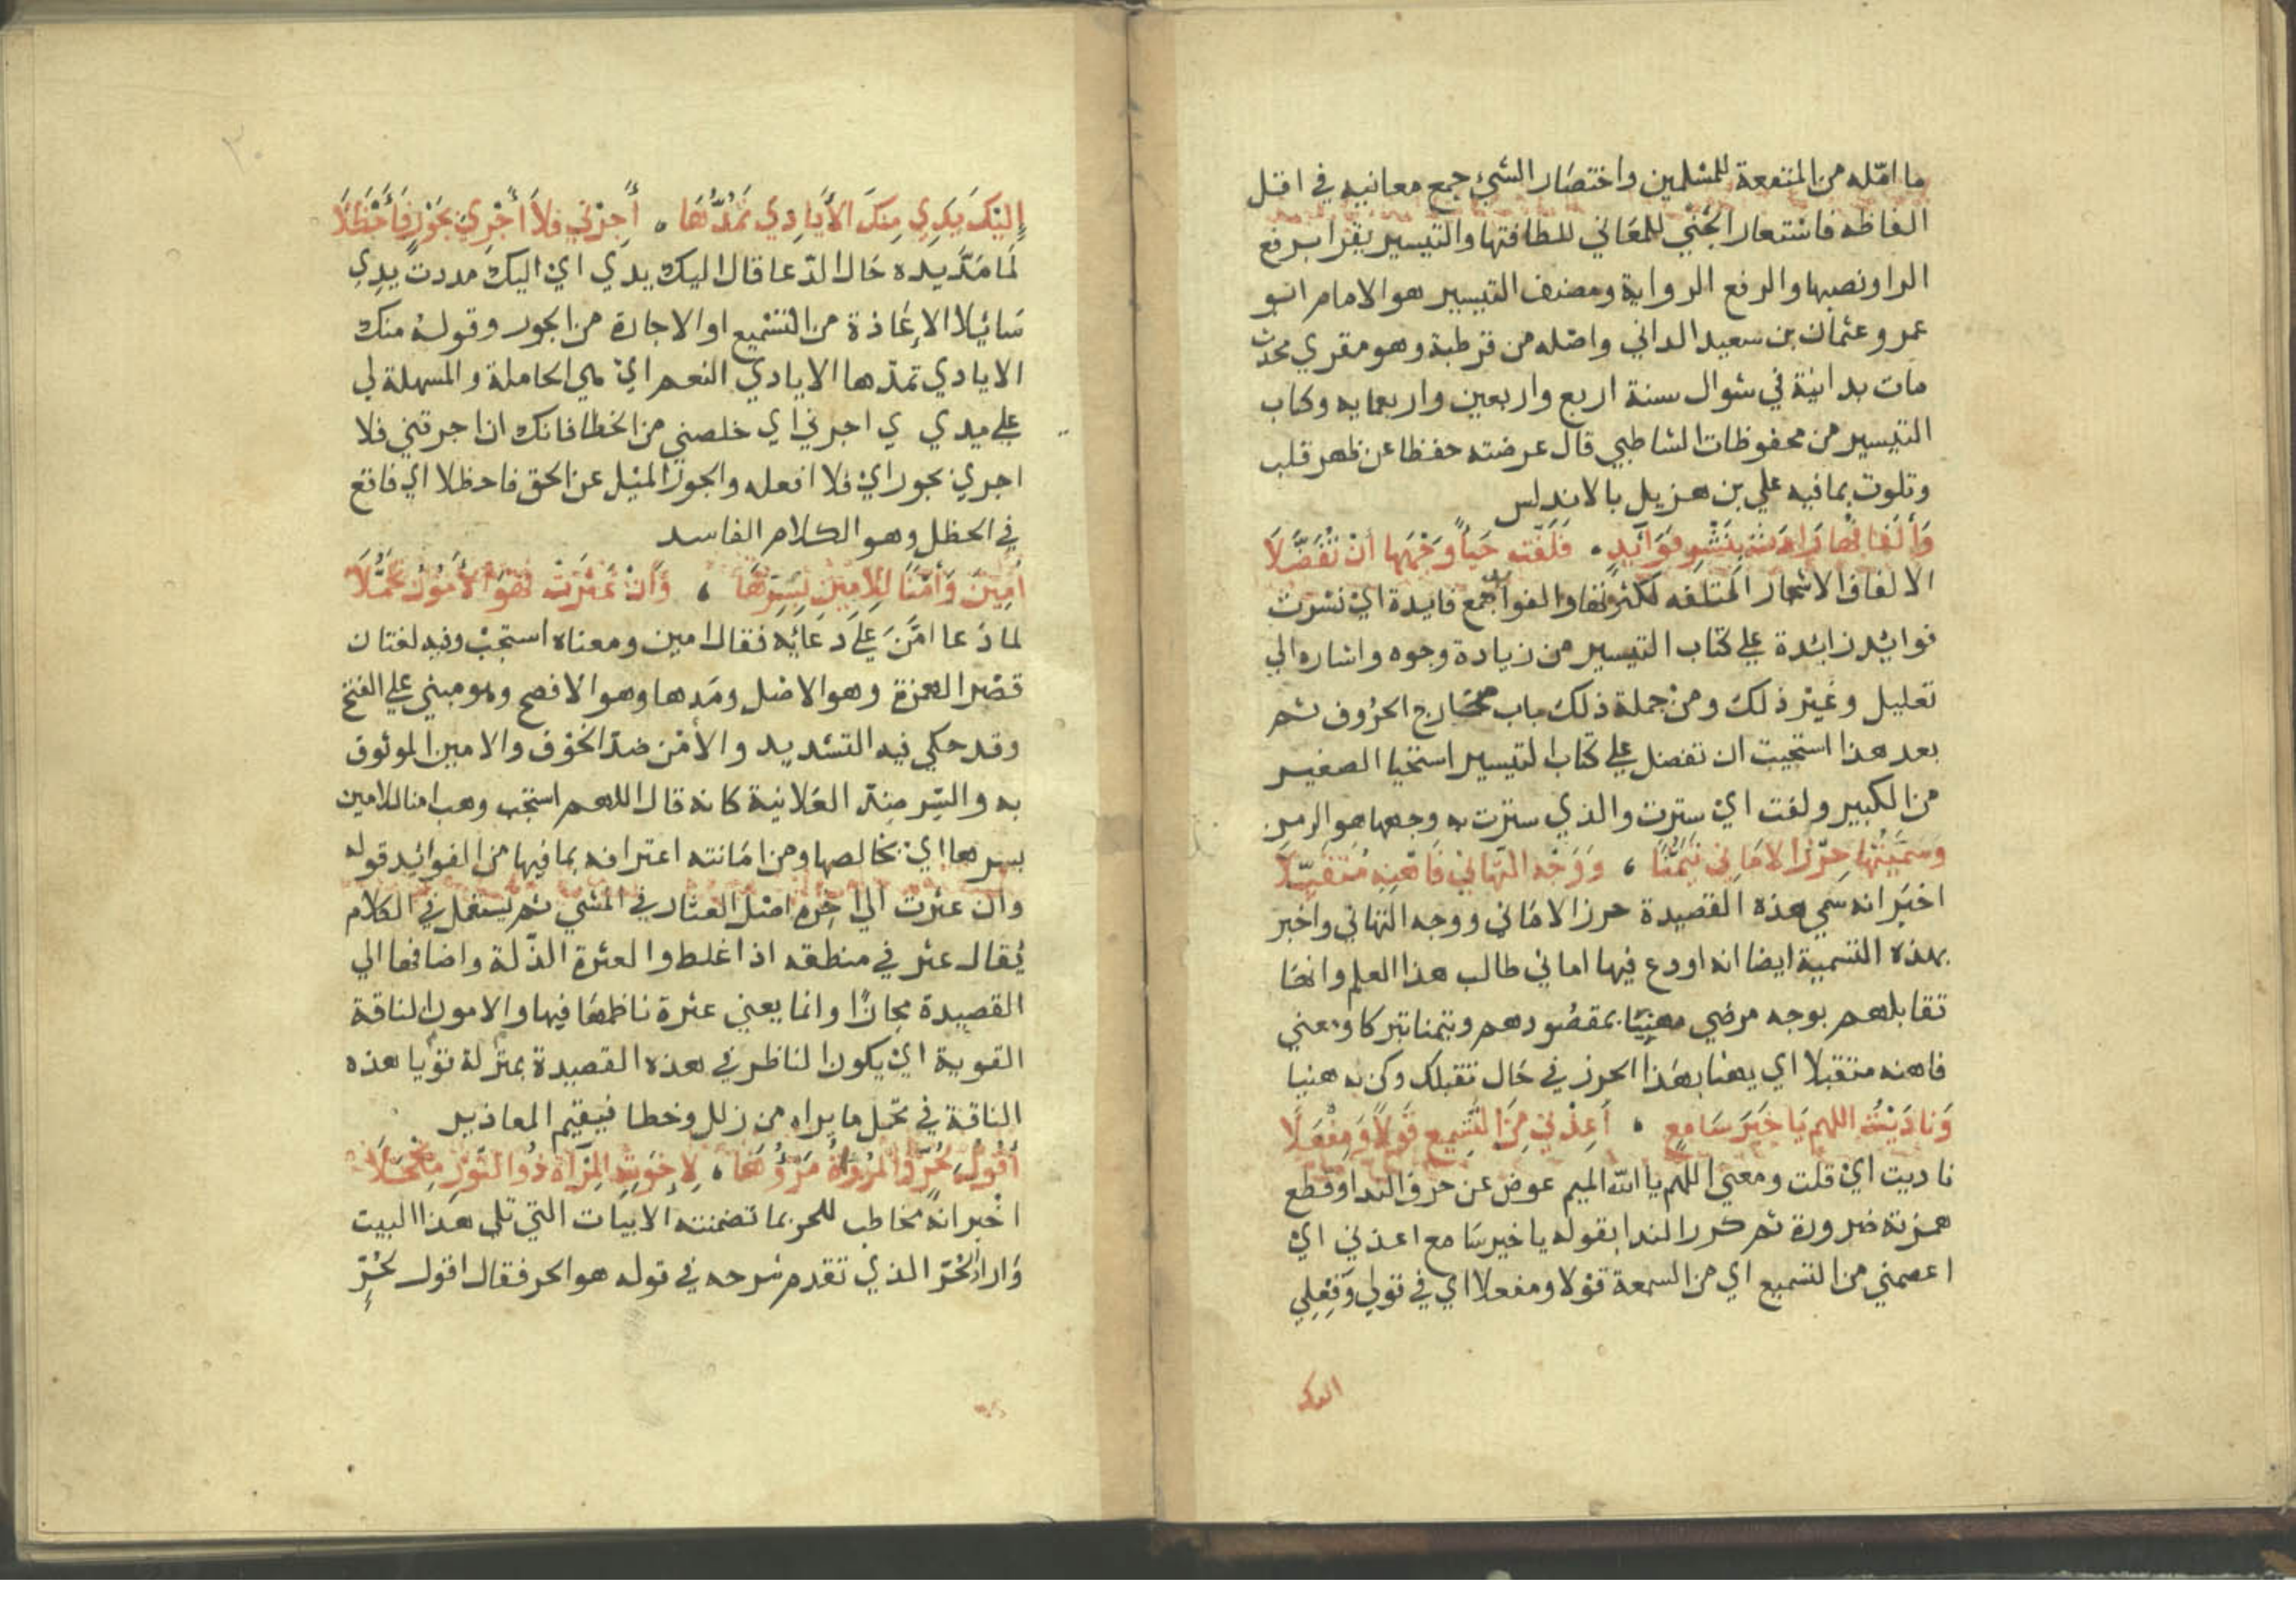 ما امّله من المنفعة للمسلمين واختصار الشيء جمع معانيه في اقل
الفاظه فاستعار الجني للمعاني للطافتها والتيسير يقرا برفع
الرا ونصبها والرفع الرواية ومصنف التيسير هو الامام ابو
عمرو عثمان بن سعيد الداني واصله من قرطبة وهو مقري محدث
مات بدانية في شوال سنة اربع واربعين واربعمايه وكتاب
التيسير من محفوظات الشاطبي قال عرضته حفظا عن ظهر قلب
وتلوت بما فيه علي بن هزيل بالاندلس
وَأَلْفَافُهَا زَادَتْ بِنَشْرِ فَوَائِدٍ . فَلَفَّتْ حَيَاءً وَجْهَهَا أَنْ تُفَضَّلَا
الالفاف الاشجار الملتفه لكثرتها والفوايد جمع فايدة اي نشرت
فوائد زائدة علي كتاب التيسير من زيادة وجوه واشاره الي
تعليل وغير ذلك ومن جملة ذلك باب مخارج الحروف ثم
بعد هذا استحيت ان تفضل علي كتاب التيسير استحيا الصغير
من الكبير ولفت اي سترت والذي سترت به وجهها هو الرمز
وَسَمَّيْتُهَا حِرْزَ الاَمَانِي تَيَمُّنًا ، وَوَجْهَ التَّهَانِي فَاهْنِهِ مُتَقَبِّلَا
اخبر انه سمي هذه القصيدة حرز الاماني ووجه التهاني واخبر
بهذه التسمية ايضا انه اودع فيها اماني طالب هذا العلم وانها
تقابلهم بوجه مرضي مهنيا بمقصودهم وتيمنا تبركا ومعني
فاهنه متقبلا اي يهنا بهذا الحرز في حال تقبلك وكن به هنيا
وَنَادَيْتُ اللهم يَا خَيْرَ سَامِعٍ . أَعِذْنِي مِنَ التَّسْمِيعِ قَوْلاً وَمِفْعَلَا
ناديت اي قلت ومعني اللهم يا الله الميم عوض عن حرف الندا وقطع
همزته ضرورة ثم كرر الندا بقوله يا خير سامع اعذني اي
اعصمني من التسميع اي من السمعة قولا ومفعلا اي في قولي وفعلي
اليك
إِلَيْكَ يَدِي مِنْكَ الأَيَادِي تَمُدُّهَا . أَجِرْنِي فَلاَ أَجْرِي بِجَوْرٍ فَأَخْطَلَا
لما مدّ يده حال الدعا قال اليك يدي اي اليك مددت يدي
سائلا الاعاذة من التسميع او الاجارة من الجور وقوله منك
الايادي تمدّها الايادي النعم اي هي الحاملة والمسهلة لي
علي مد يدي اجرني اي خلصني من الخطا فانك ان اجرتني فلا
اجري بجور اي فلا افعله والجور الميل عن الحق فاخطلا اي فاتع
في الخطل وهو الكلام الفاسد
أَمِينَ وَأَمْنًا لِلأَمِينِ بِسِرِّهَا ، وَإِنْ عَثَرَتْ فَهْوَ الأَمُونُ تَحَمُّلَا
لما دعا امّن علي دعائه فقال امين ومعناه استجب وفيه لغتان
قصر الهمزة وهو الاصل ومدها وهو الافصح وهو مبني علي الفتح
وقد حكي فيه التشديد والأمن ضدّ الخوف والامين الموثوق
به والسّر ضد العلانية كانه قال اللهم استجب وهب امنا للامين
بسرها اي بخالصها ومن امانته اعترافه بما فيها من الفوائد قوله
وان عثرت الي اخره اصل العثار في المشي ثم يستعمل في الكلام
يُقال عثر في منطقه اذا غلط والعثرة الذّلة واضافها الي
القصيدة مجازًا وانما يعني عثرة ناظمها فيها والامون الناقة
القوية اي يكون الناظر في هذه القصيدة بمنزلة قويا هذه
الناقة في تحمل ما يراه من زلل وخطا فيقيم المعاذير
أَقُولُ لِحُرٍّ وَالمُرُوءَةُ مَرْؤُهَا ، لإِخْوَتِهِ المِرْآةُ ذُو النُّورِ مِكْحَلَا
اخبر انه مخاطب للحر بما تضمنته الابيات التي تلي هذا البيت
واراد بالحرّ الذي تقدم شرحه في قوله هو الحر فقال اقول لحُرٍّ